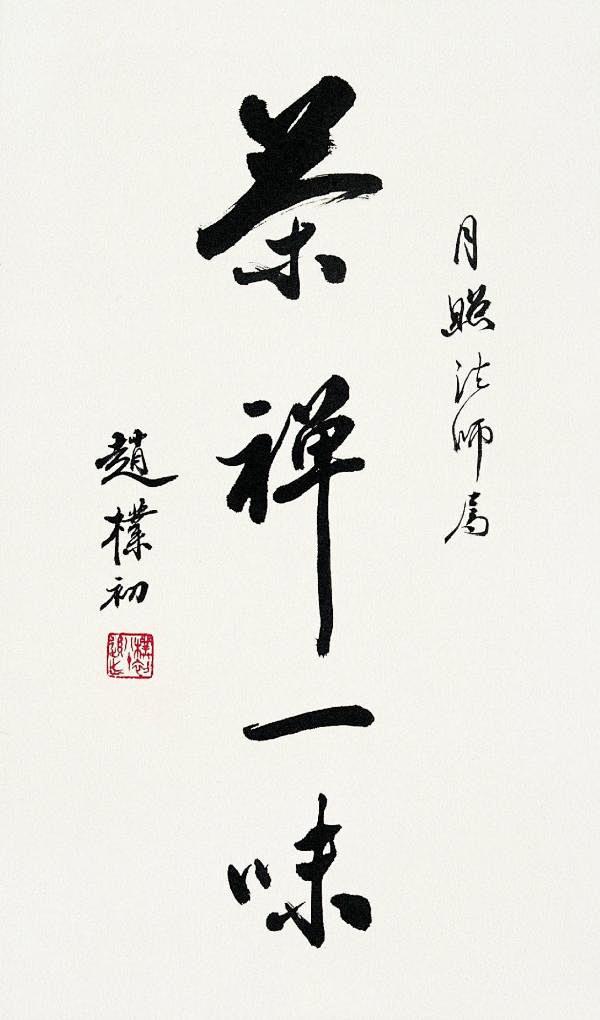 月照法师属
茶禅一味
趙樸初